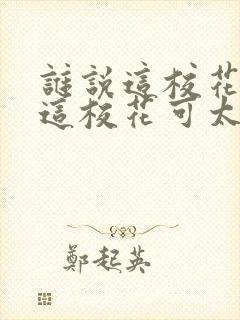 誰説這校花
這校花可太
鄭起英